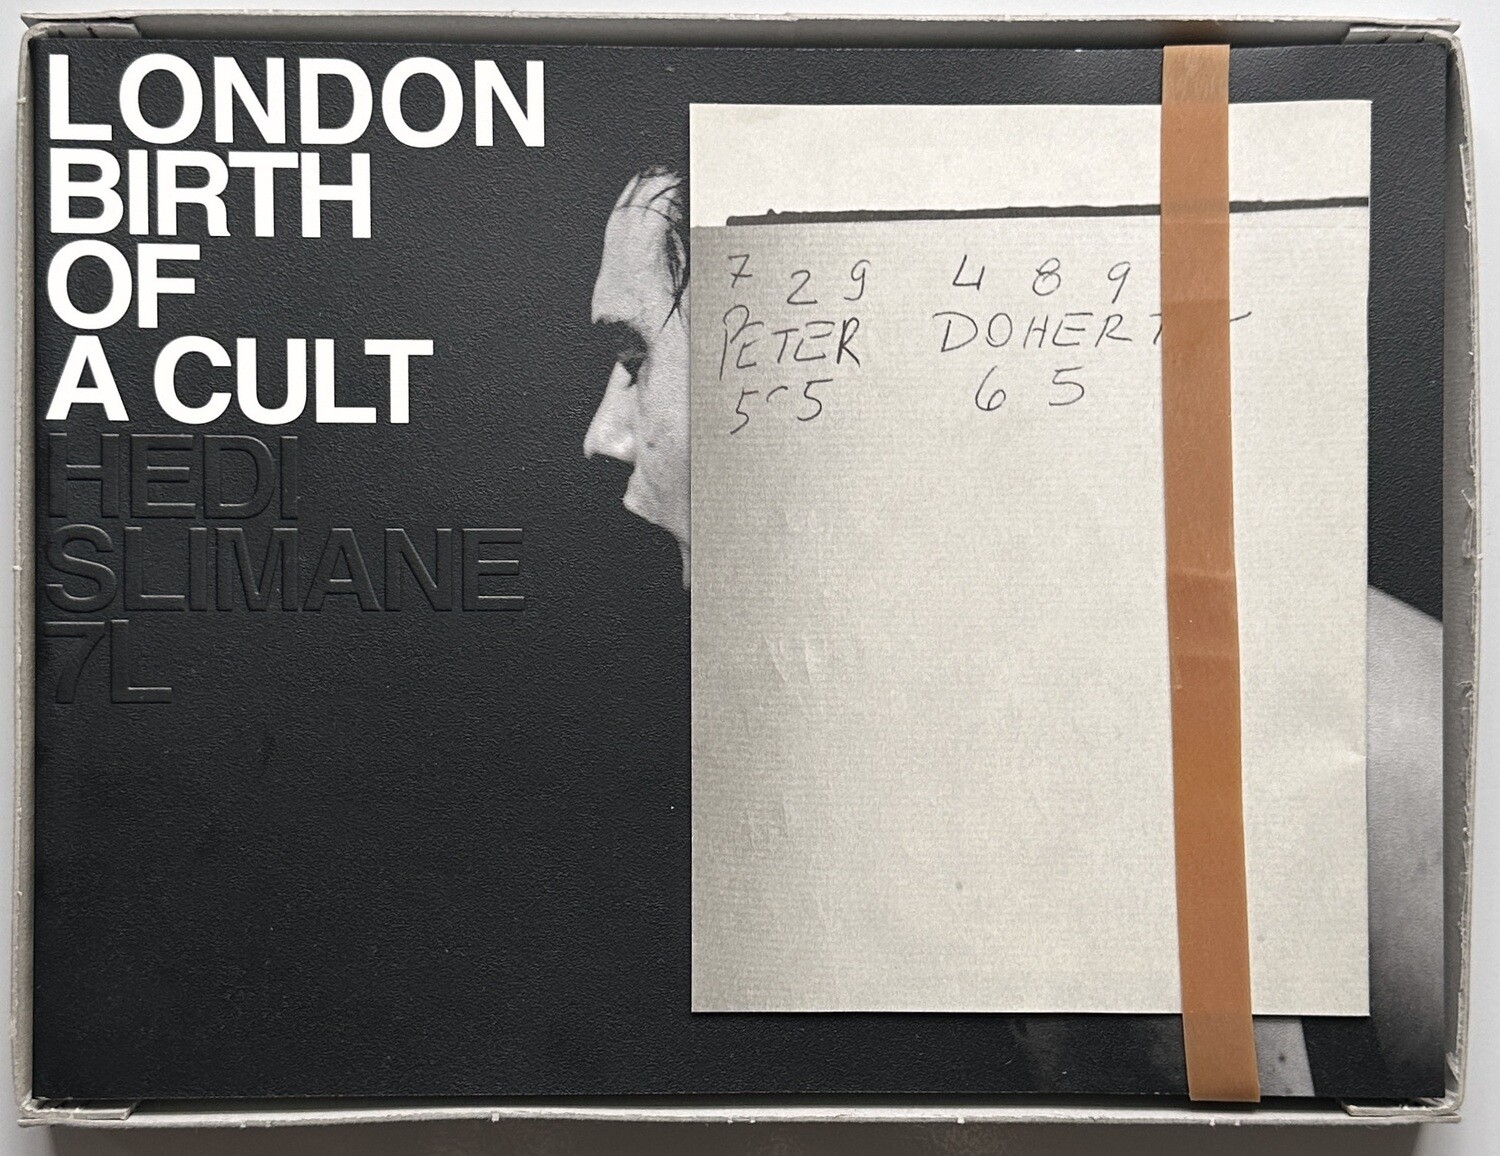 LONDON
BIRTH
OF
A CULT
HEDI
SLIMANE
7L
7 2 9 4 8 9
PETER DOHERT
5 5 6 5